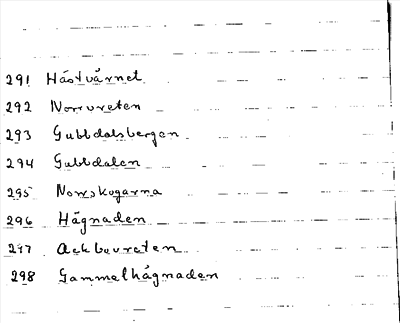 291 Hästvårnet
292 Norrvreten
293 Gubbdalsbergen
294 Gubbdalen
295 Norrskogarna
296 Hägnaden
297 Ackbovreten
298 Gammelhägnaden